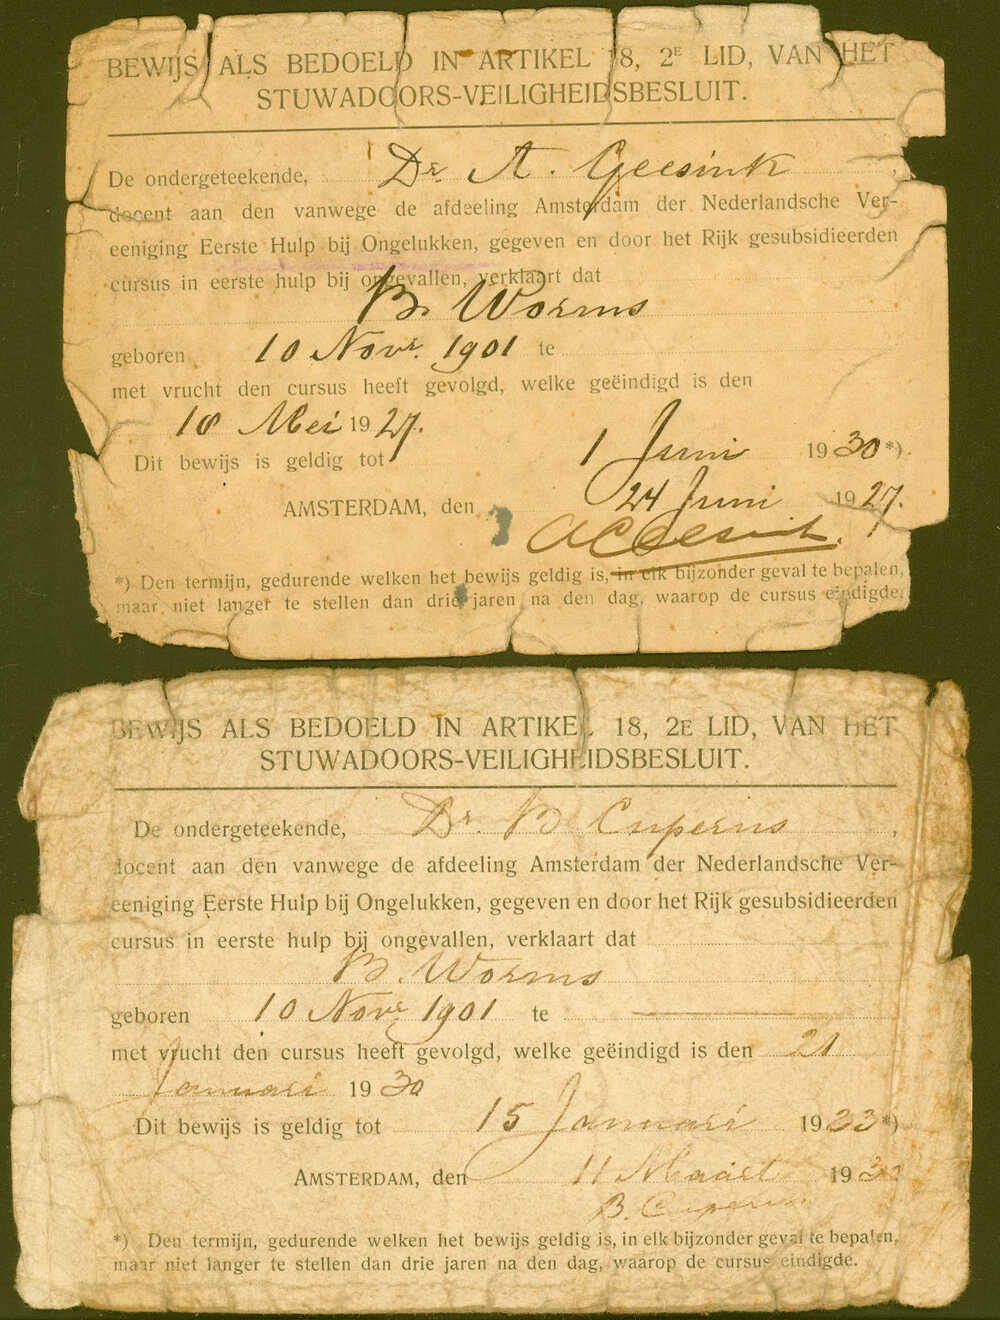 BEWIJS ALS BEDOELD IN ARTIKEL 18, 2E LID, VAN HET
STUWADOORS-VEILIGHEIDSBESLUIT.
De ondergeteekende, Dr. A. Geesink,
docent aan den vanwege de afdeeling Amsterdam der Nederlandsche Ver-
eeniging Eerste Hulp bij Ongelukken, gegeven en door het Rijk gesubsidieerden
cursus in eerste hulp bij ongevallen, verklaart dat
B. Worms
geboren 10 Novr. 1901 te
met vrucht den cursus heeft gevolgd, welke geëindigd is den
18 Mei 1927.
Dit bewijs is geldig tot 1 Juni 1930*).
AMSTERDAM, den 24 Juni 1927.
ACGeesink.
*) Den termijn, gedurende welken het bewijs geldig is, in elk bijzonder geval te bepalen,
maar niet langer te stellen dan drie jaren na den dag, waarop de cursus eindigde.
BEWIJS ALS BEDOELD IN ARTIKEL 18, 2E LID, VAN HET
STUWADOORS-VEILIGHEIDSBESLUIT.
De ondergeteekende, Dr. B Cuperus,
docent aan den vanwege de afdeeling Amsterdam der Nederlandsche Ver-
eeniging Eerste Hulp bij Ongelukken, gegeven en door het Rijk gesubsidieerden
cursus in eerste hulp bij ongevallen, verklaart dat
B. Worms
geboren 10 Novr 1901 te
met vrucht den cursus heeft gevolgd, welke geëindigd is den 21
Januari 1930
Dit bewijs is geldig tot 15 Januari 1933*)
AMSTERDAM, den 11 Maart 1930
B. Cuperus
*) Den termijn, gedurende welken het bewijs geldig is, in elk bijzonder geval te bepalen,
maar niet langer te stellen dan drie jaren na den dag, waarop de cursus eindigde.